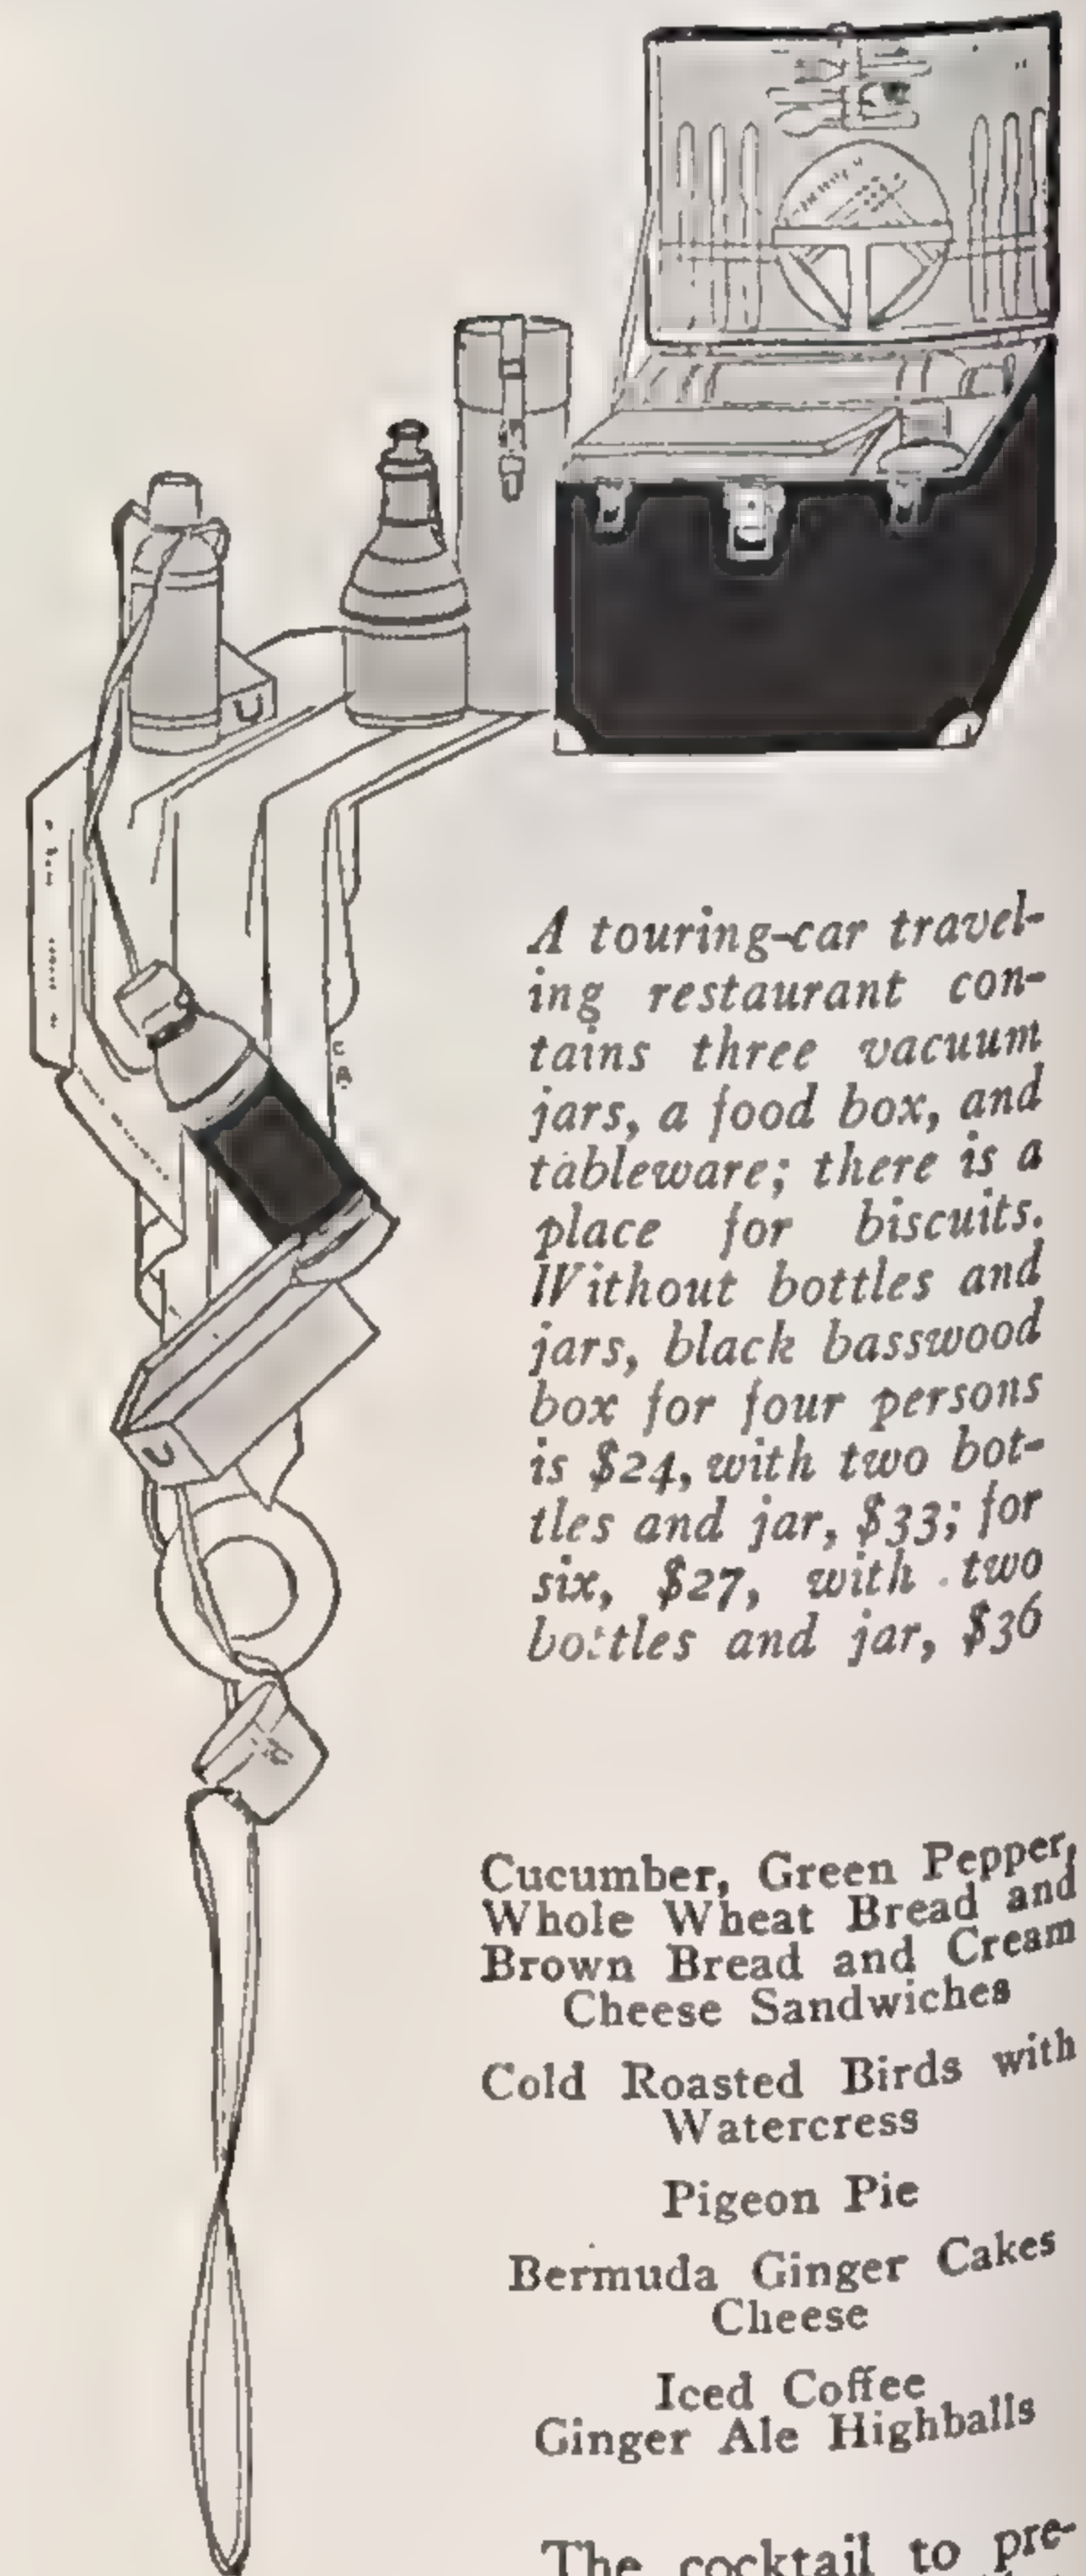 A touring-car travel-
ing restaurant con-
tains three vacuum
jars, a food box, and
tableware; there is a
place for biscuits.
Without bottles and
jars, black basswood
box for four persons
is $24, with two bot-
tles and jar, $33; for
six, $27, with two
bottles and jar, $36
Cucumber, Green Pepper,
Whole Wheat Bread and
Brown Bread and Cream
Cheese Sandwiches
Cold Roasted Birds with
Watercress
Pigeon Pie
Bermuda Ginger Cakes
Cheese
Iced Coffee
Ginger Ale Highballs
The cocktail to pre-